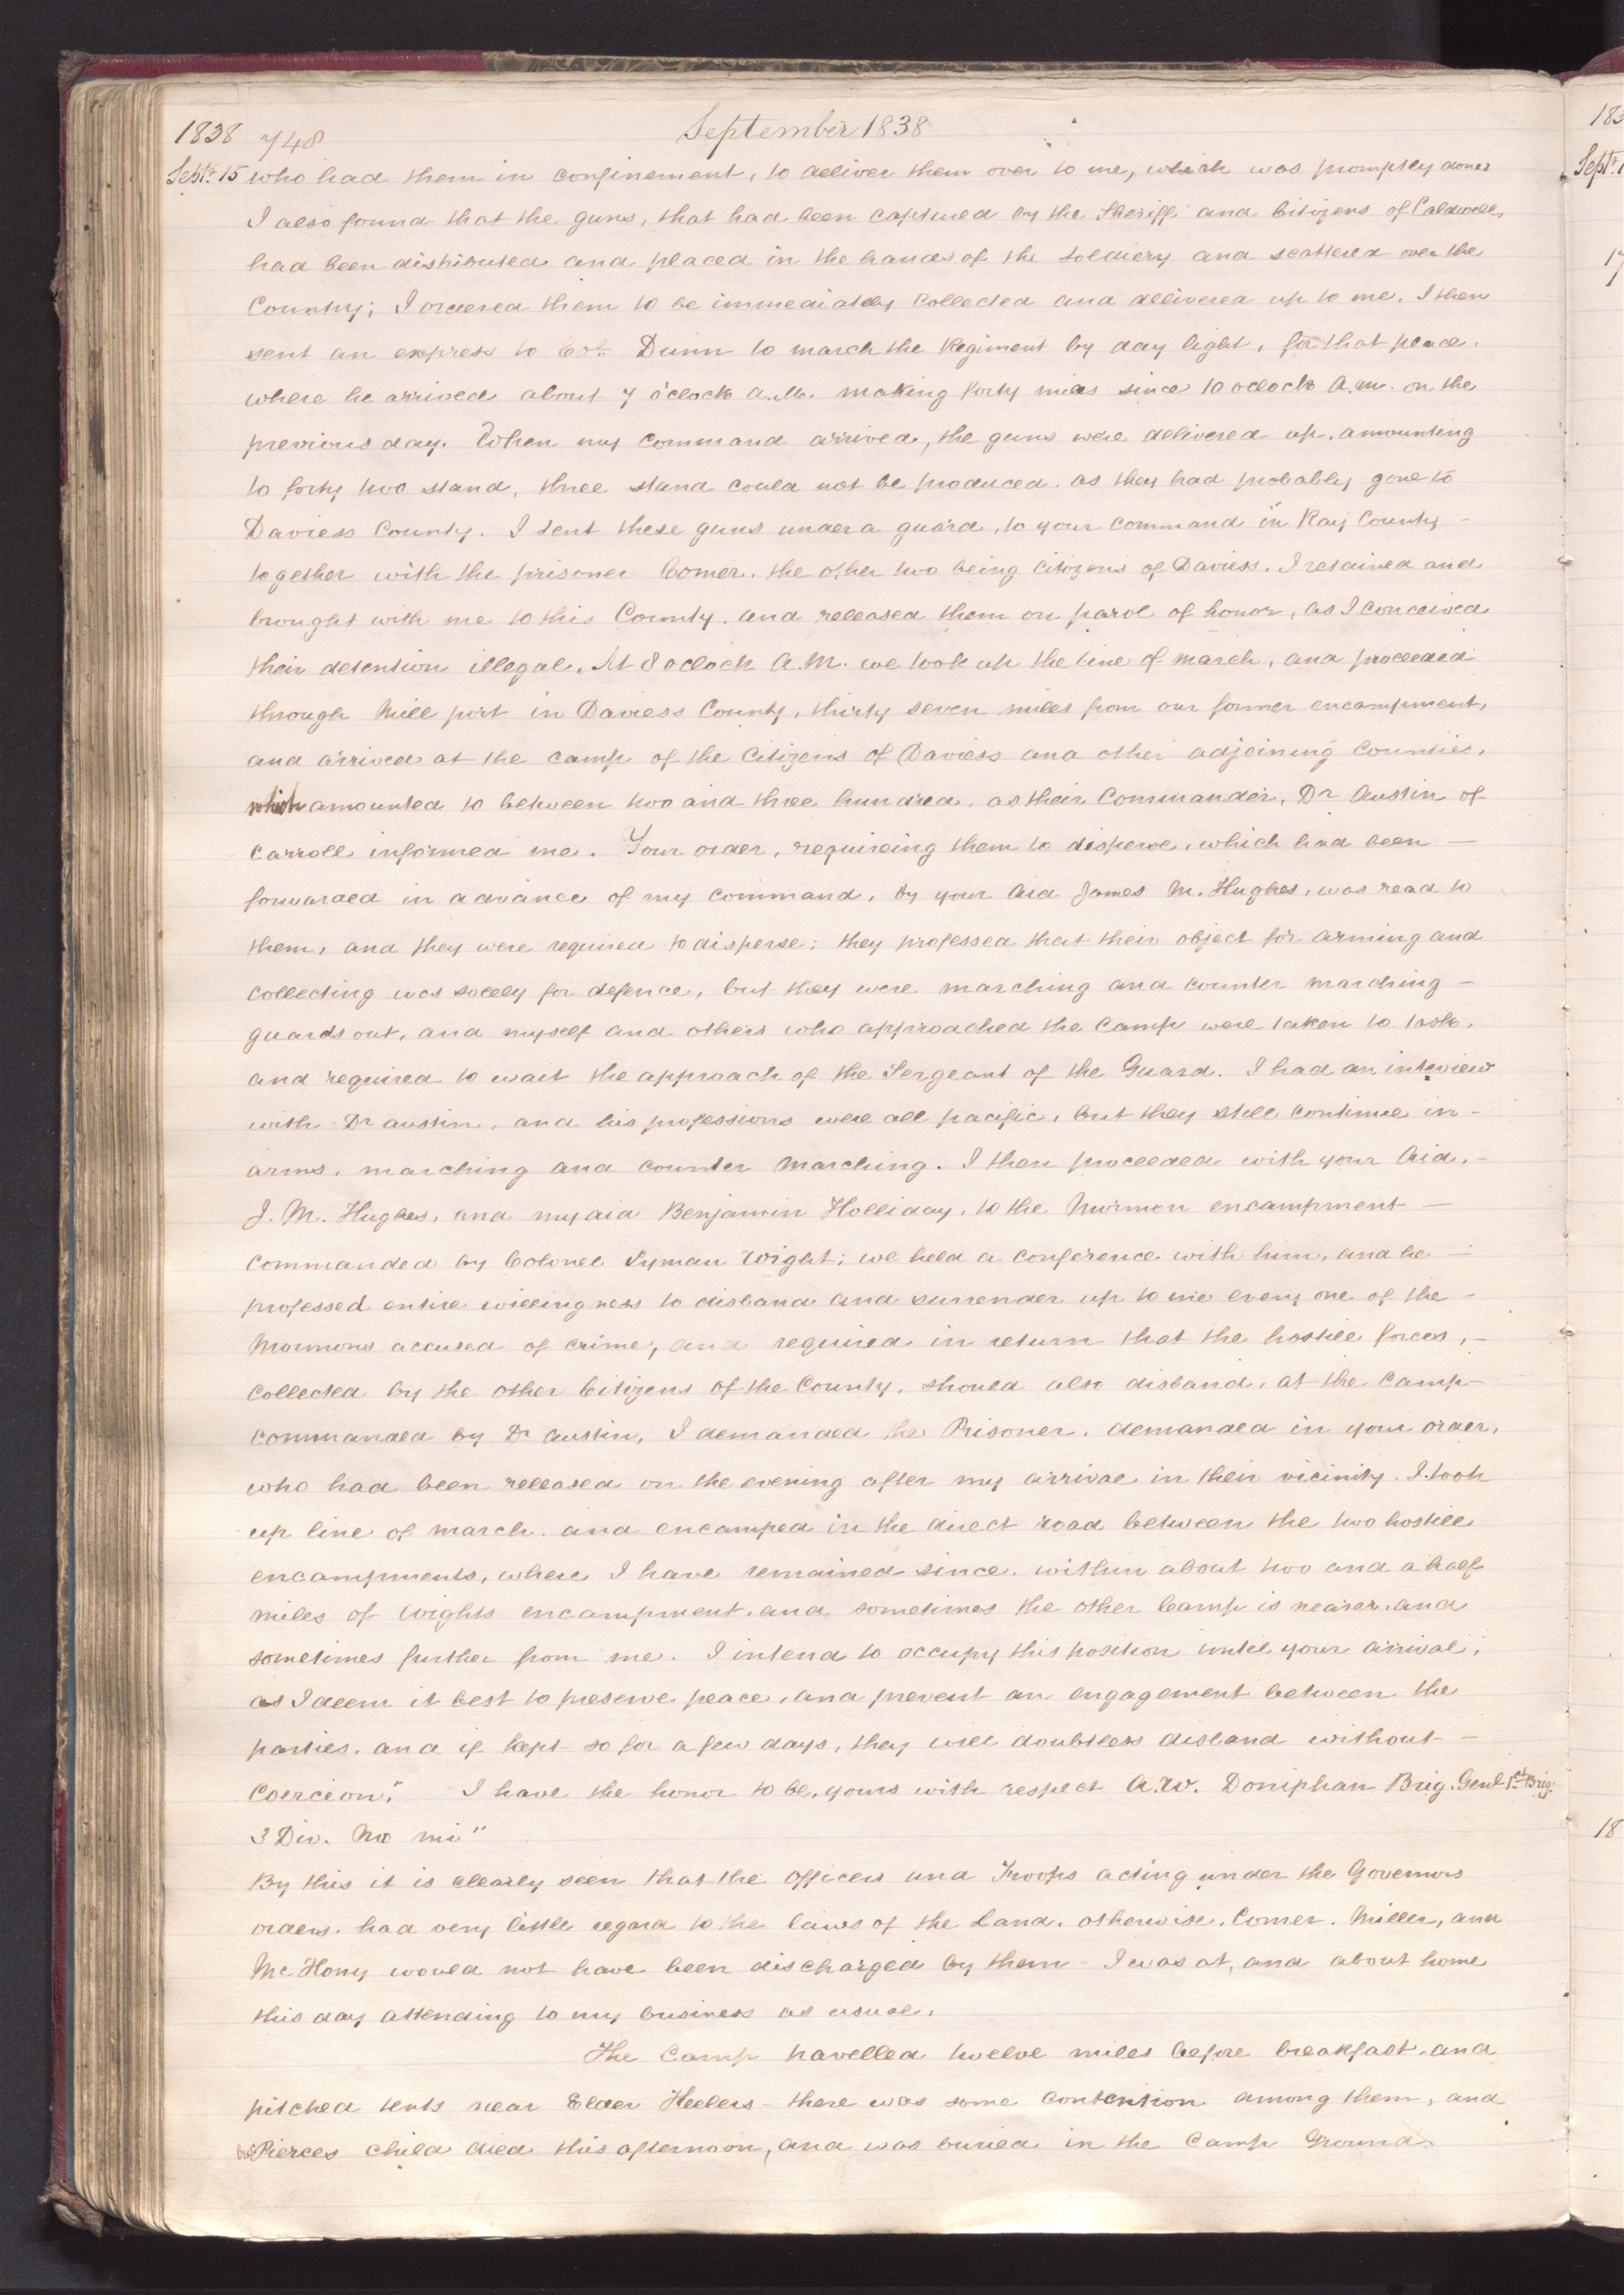 1838 748 September 1838
Septr. 15 who had them in confinement, to deliver them over to me, which was promptly done.
I also found that the guns, that had been captured by the Sheriff and Citizens of Caldwell,
had been distributed and placed in the hands of the soldiery and scattered over the
Country; I ordered them to be immediately collected and delivered up to me. I then
sent an express to Col. Dunn to march the Regiment by day light, for that place.
where he arrived about 7 o'clock a.m. making forty miles since 10 oclock A.m. on the
previous day. When my command arrived, the guns were delivered up. amounting
to forty two stand, three stand could not be produced. as they had probably gone to
Daviess County. I sent these guns under a guard, to your command in Ray County –
together with the prisoner Comer. the other two being citizens of Daviess. I retained and
brought with me to this County. and released them on parol of honor, as I conceived
their detention illegal. At 8 oclock A.M. we took up the line of march, and proceeded
through Mill port in Daviess County, thirty seven miles from our former encampment,
and arrived at the camp of the Citizens of Daviess and other adjoining counties,
which amounted to between two and three hundred. as their Commander, Dr Austin of
Carroll informed me. Your order, requireing them to disperse, which had been –
forwarded in advance of my command, by your Aid James M. Hughes, was read to
them, and they were required to disperse; they professed that their object for arming and
collecting was solely for defence, but they were marching and counter marching –
guards out, and myself and others who approached the camp were taken to task,
and required to wait the approach of the Sergeant of the Guard. I had an interview
with Dr austin, and his professions were all pacific, but they still continue in –
arms, marching and counter marching. I then proceeded with your Aid, –
J. M. Hughes, and my aid Benjamin Holliday, to the Mormon encampment –
commanded by Colonel Lyman Wight; we held a conference with him, and he –
professed entire willingness to disband and surrender up to me every one of the –
Mormons accused of crime, and required in return that the hostile forces, –
collected by the other Citizens of the County, should also disband. at the camp –
commanded by Dr Austin, I demanded the Prisoner, demanded in your order,
who had been released on the evening after my arrival in their vicinity. I took
up line of march. and encamped in the direct road between the two hostile
encampments, where I have remained since. within about two and a half
miles of Wights encampment. and sometimes the other Camp is nearer. and
sometimes further from me. I intend to occupy this position until your arrival,
as I deem it best to preserve peace, and prevent an engagement between the
parties. and if kept so for a few days, they will doubtless disband without –
coercion." I have the honor to be, yours with respect A.W. Doniphan Brig. Genl 1st Brig:
3 Div. Mo mi"
By this it is clearly seen that the Officers and Troops acting under the Governors
orders. had very little regard to the laws of the Land. otherwise. Comer. Miller, and
McHony would not have been discharged by them – I was at, and about home
this day attending to my business as usual.
The Camp travelled twelve miles before breakfast. and
pitched tents near Elder Keelers – there was some contention among them, and
bro Pierces child died this afternoon, and was buried in the Camp Ground.
183
Sept.
17
18